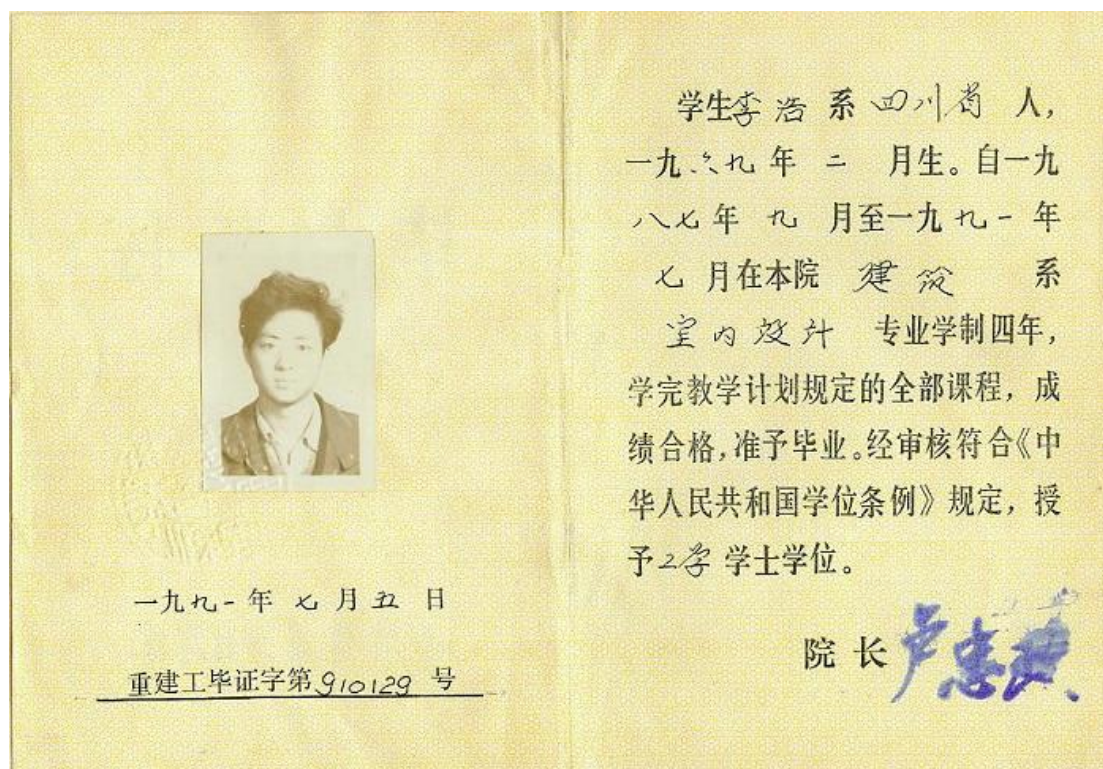 一九九一年 七月五日
重建工毕证字第910129号
学生李浩系四川省人，
一九六九年二月生。自一九
八七年九月至一九九一年
七月在本院建筑系
室内设计专业学制四年，
学完教学计划规定的全部课程，成
绩合格，准予毕业。经审核符合《中
华人民共和国学位条例》规定，授
予工学学士学位。
院长